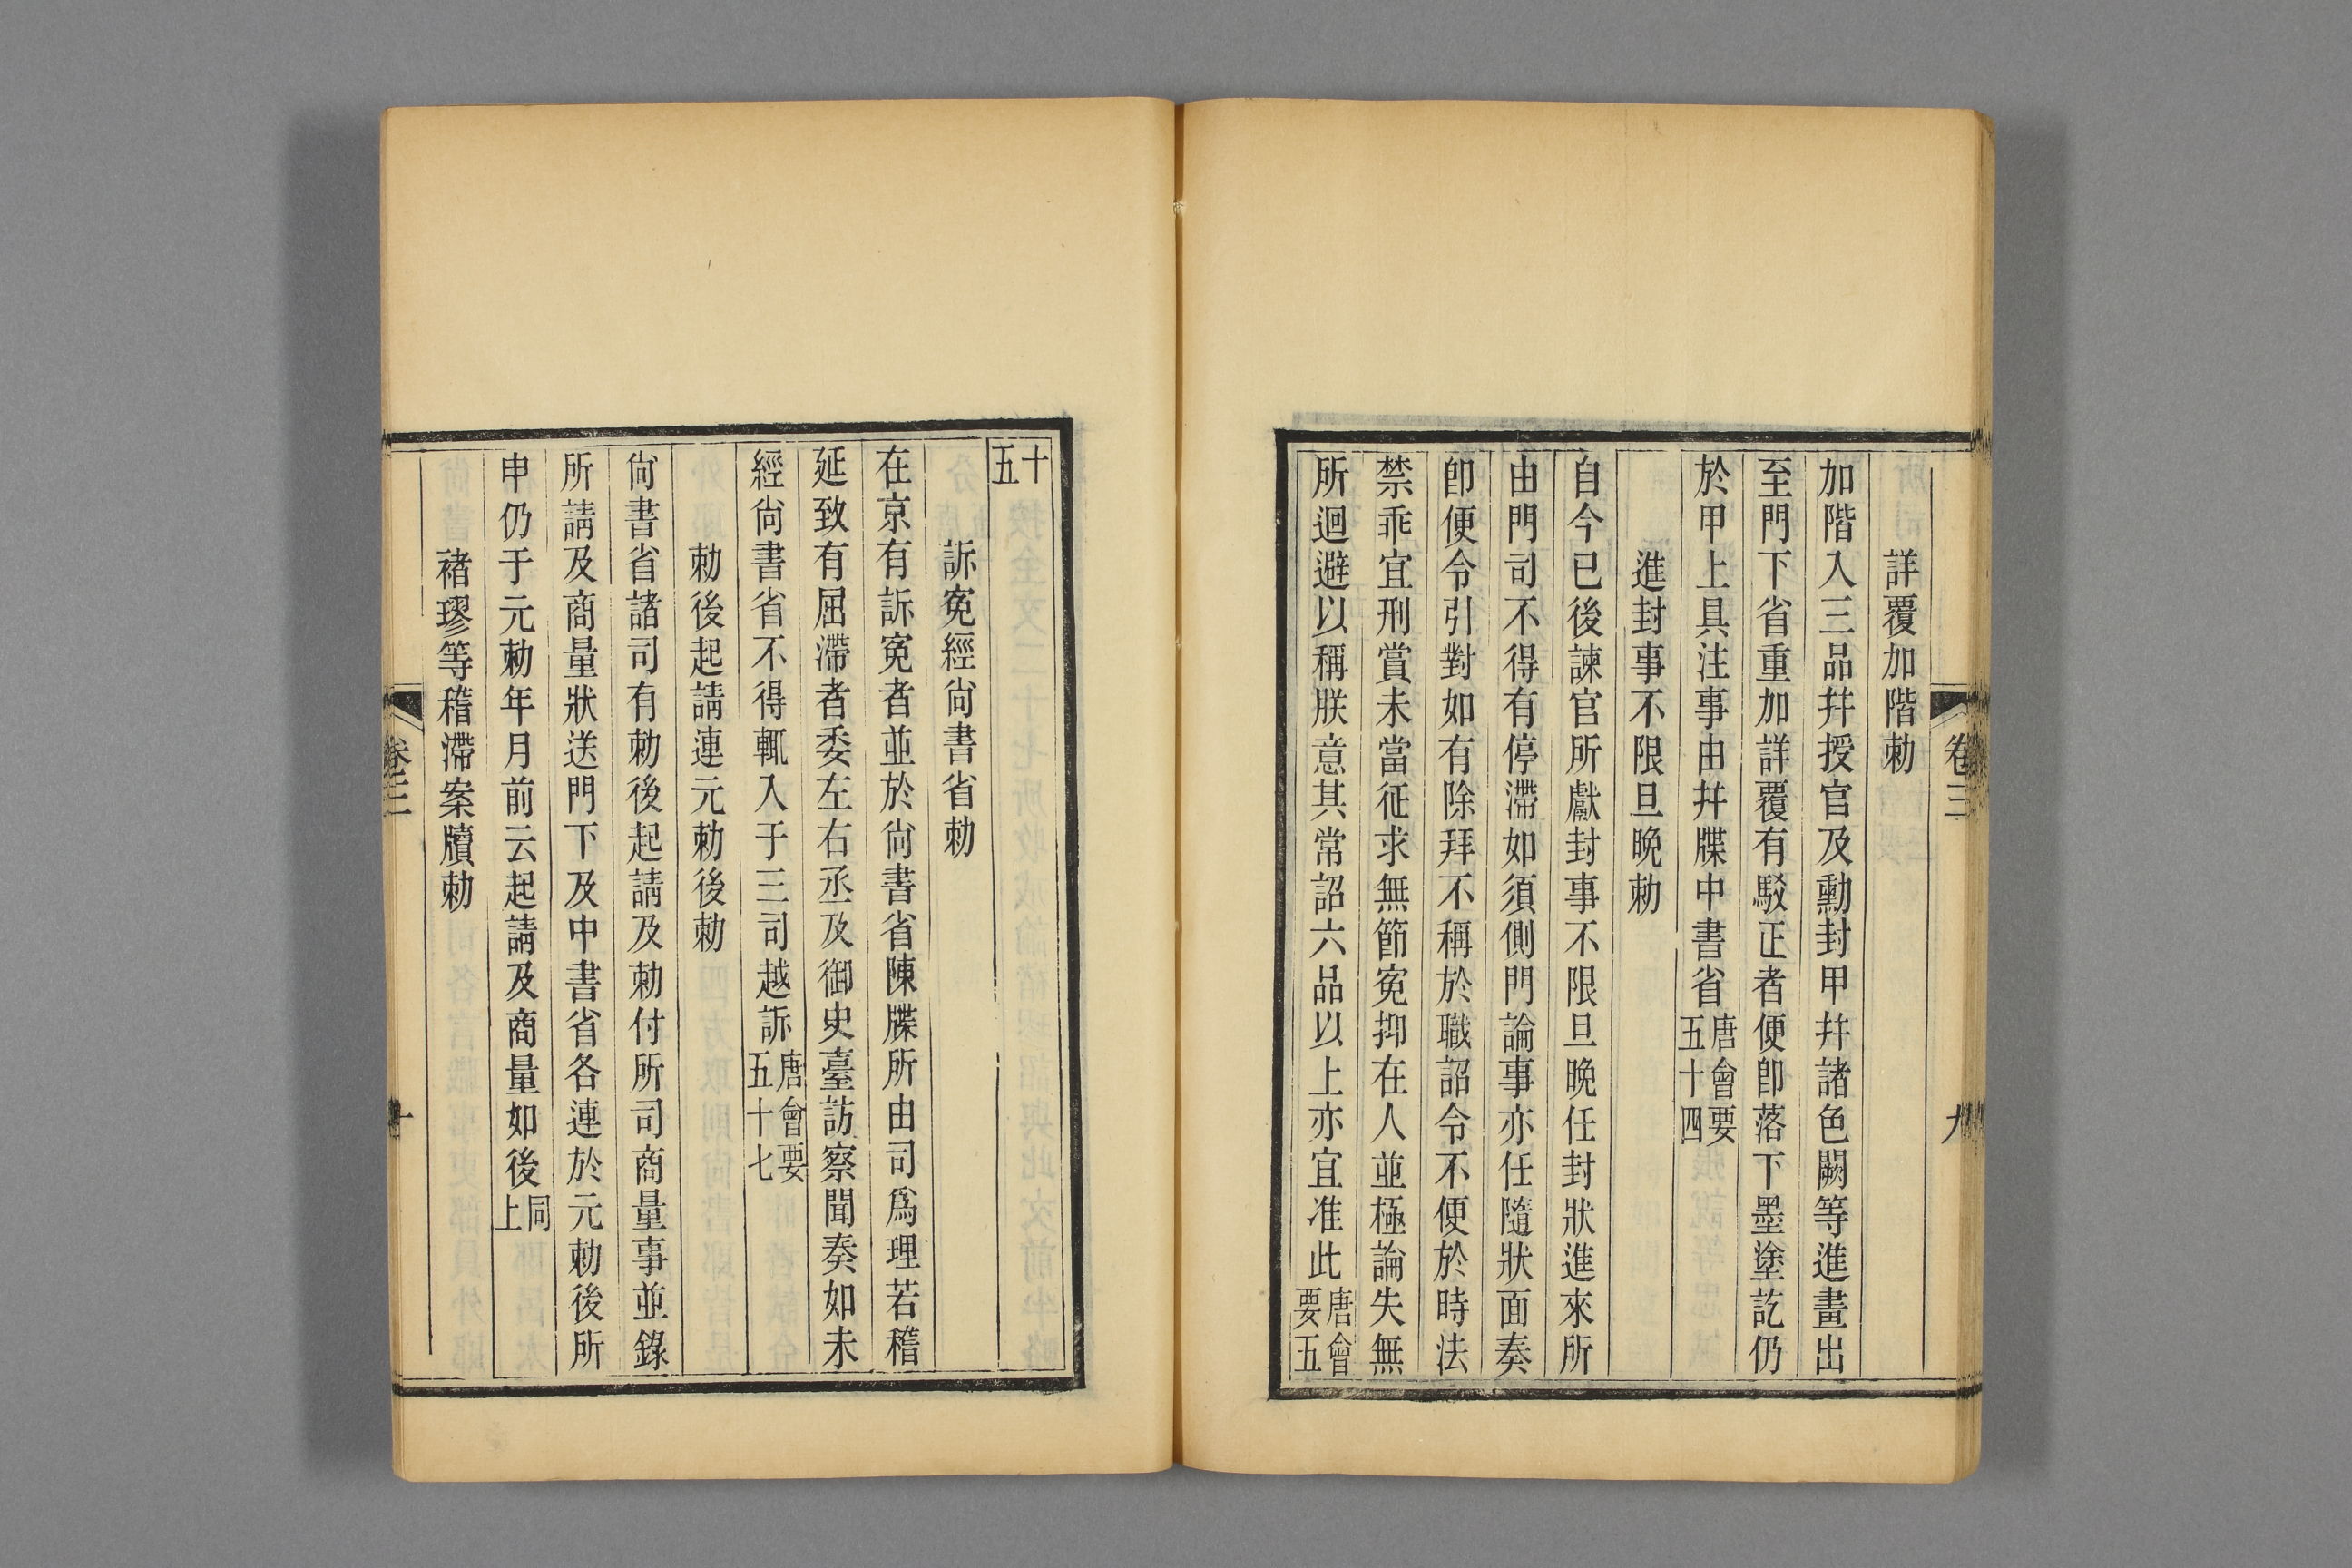 卷三
九
詳覆加階勅
加階入三品幷授官及勳封甲幷諸色闕等進畫出
至門下省重加詳覆有駁正者便卽落下墨塗訖仍
於甲上具注事由幷牒中書省唐會要五十四
進封事不限旦晚勅
自今已後諫官所獻封事不限旦晚任封狀進來所
由門司不得有停滯如須側門論事亦任隨狀面奏
卽便令引對如有除拜不稱於職詔令不便於時法
禁乖宜刑賞未當征求無節寃抑在人並極論失無
所迴避以稱朕意其常詔六品以上亦宜准此唐會要五
十五
訴寃經尙書省勅
在京有訴寃者並於尙書省陳牒所由司爲理若稽
延致有屈滯者委左右丞及御史臺訪察聞奏如未
經尙書省不得輒入于三司越訴唐會要五十七
勅後起請連元勅後勅
尙書省諸司有勅後起請及勅付所司商量事並錄
所請及商量狀送門下及中書省各連於元勅後所
申仍于元勅年月前云起請及商量如後同上
褚璆等稽滯案牘勅
卷三
十